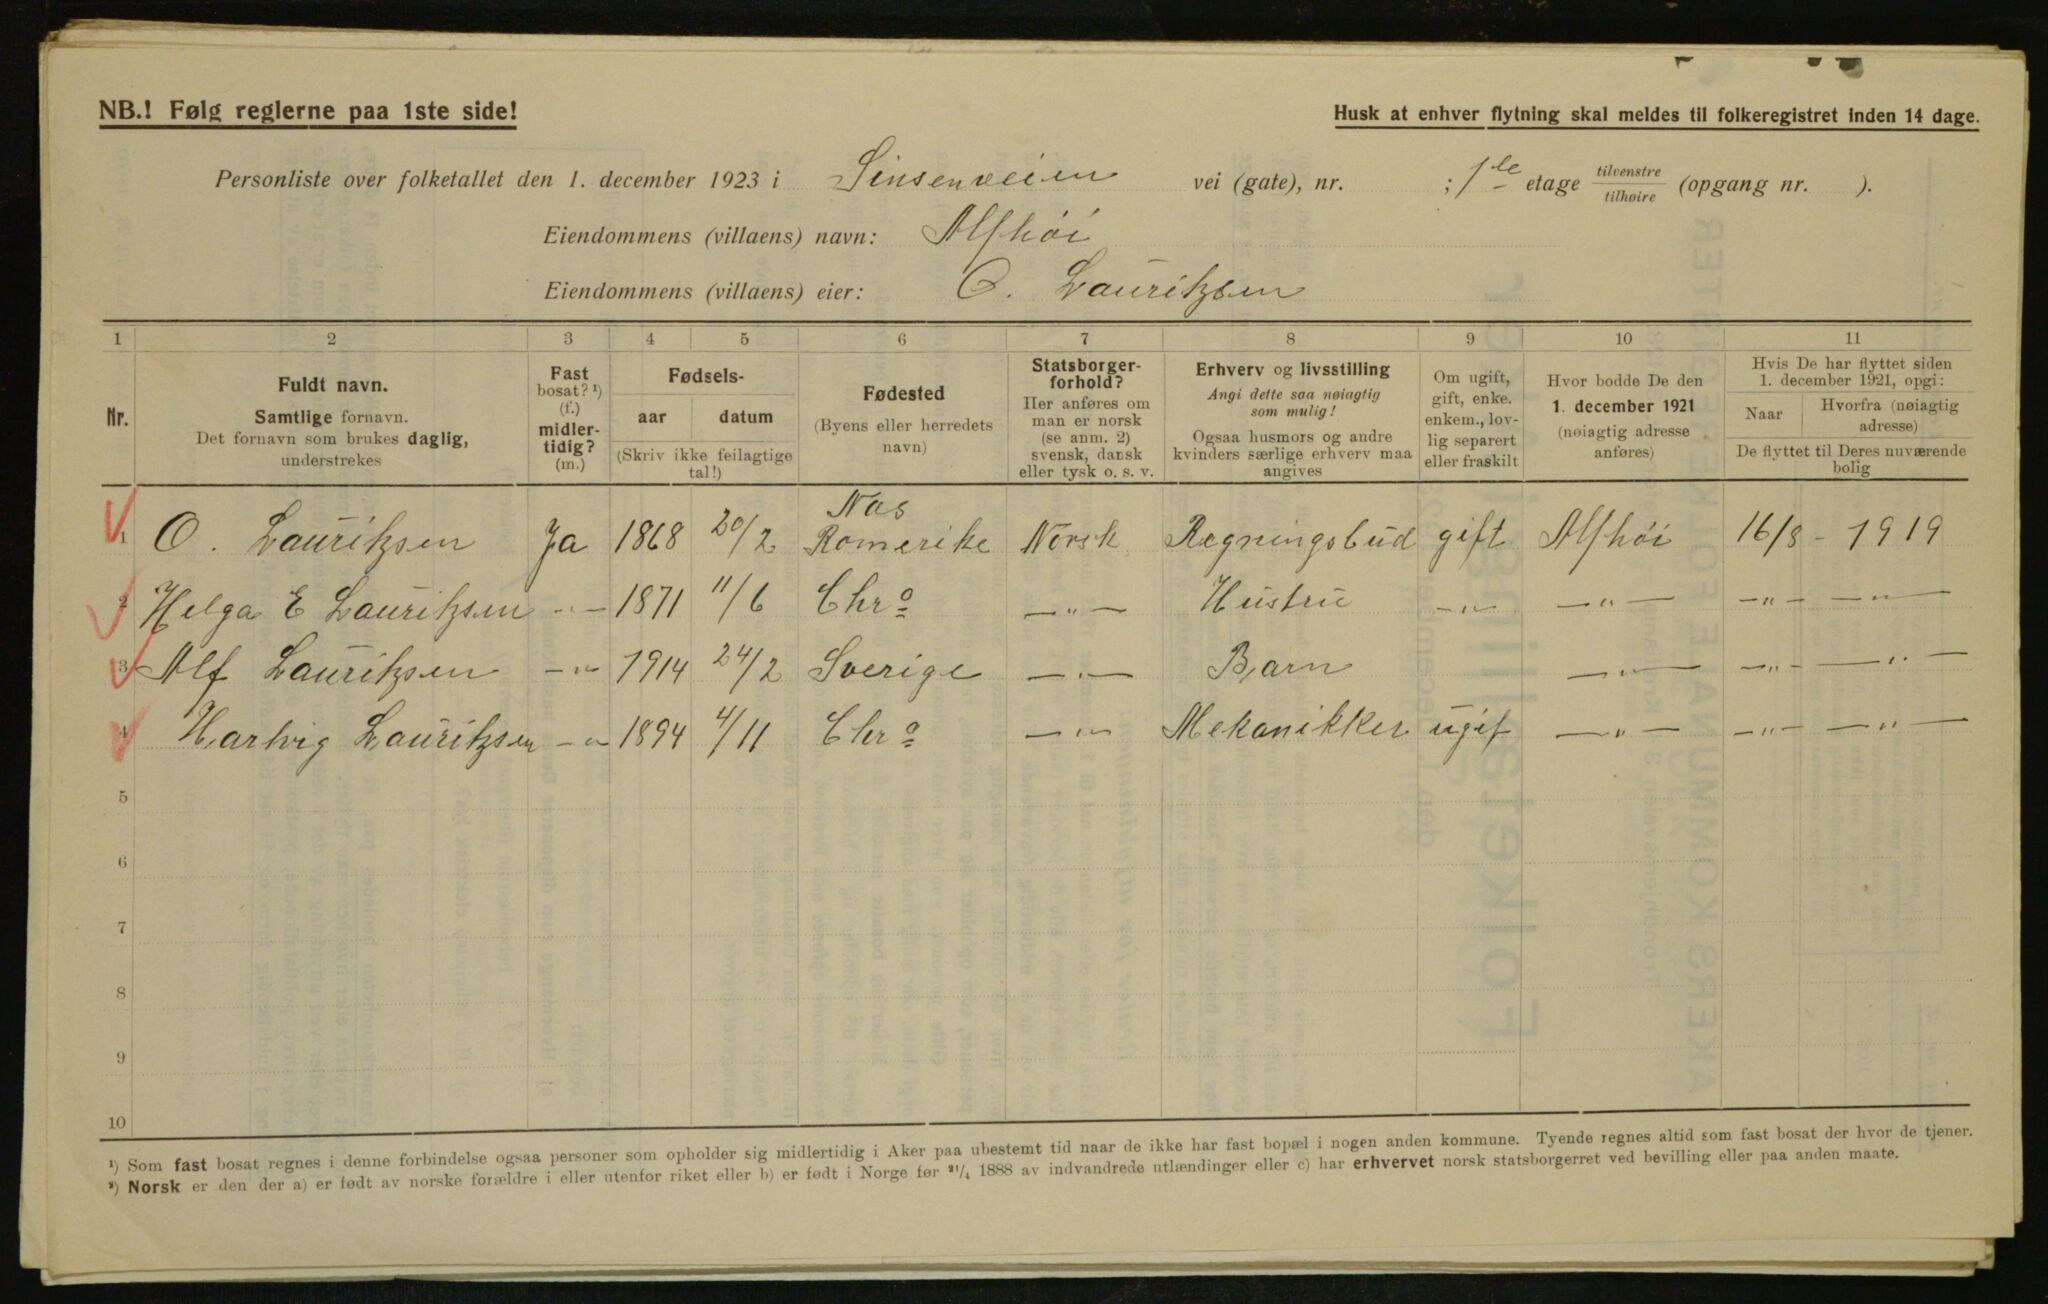 NB.! Følg reglerne paa 1ste side!
Husk at enhver flytning skal meldes til folkeregistret inden 14 dage.
Personliste over folketallet den 1. december 1923 i Sinsenveien vei (gate), nr. ; 1ste etage tilvenstre/tilhøire (opgang nr. ).
Eiendommens (villaens) navn: Alfhöi
Eiendommens (villaens) eier: O. Lauritzsen
1 2 3 4 5 6 7 8 9 10 11
Nr.
Fuldt navn.
Samtlige fornavn.
Det fornavn som brukes daglig,
understrekes
Fast
bosat? ¹)
(f.)
midler-
tidig?
(m.)
Fødsels-
aar datum
(Skriv ikke feilagtige
tal!)
Fødested
(Byens eller herredets
navn)
Statsborger-
forhold?
Her anføres om
man er norsk
(se anm. 2)
svensk, dansk
eller tysk o. s. v.
Erhverv og livsstilling
Angi dette saa nøiagtig
som mulig!
Ogsaa husmors og andre
kvinders særlige erhverv maa
angives
Om ugift,
gift, enke.
enkem., lov-
lig separert
eller fraskilt
Hvor bodde De den
1. december 1921
(nøiagtig adresse
anføres)
Hvis De har flyttet siden
1. december 1921, opgi:
Naar Hvorfra (nøiagtig
adresse)
De flyttet til Deres nuværende
bolig
1 O. Lauritzsen Ja 1868 20/2 Nas Romerike Norsk Regningsbud gift Alfhöi 16/8 - 1919
2 Helga E Lauritzsen -„- 1871 11/6 Chra -„- Hustru -„- -„- -„- -„-
3 Alf Lauritzsen -„- 1914 24/2 Sverige -„- Barn -„- -„- -„-
4 Hartvig Lauritzsen -„- 1894 4/11 Chra -„- Mekanikker ugif -„- -„- -„-
5
6
7
8
9
10
¹) Som fast bosat regnes i denne forbindelse ogsaa personer som opholder sig midlertidig i Aker paa ubestemt tid naar de ikke har fast bopæl i nogen anden kommune. Tyende regnes altid som fast bosat der hvor de tjener.
²) Norsk er den der a) er født av norske forældre i eller utenfor riket eller b) er født i Norge før 21/4 1888 av indvandrede utlændinger eller c) har erhvervet norsk statsborgerret ved bevilling eller paa anden maate.